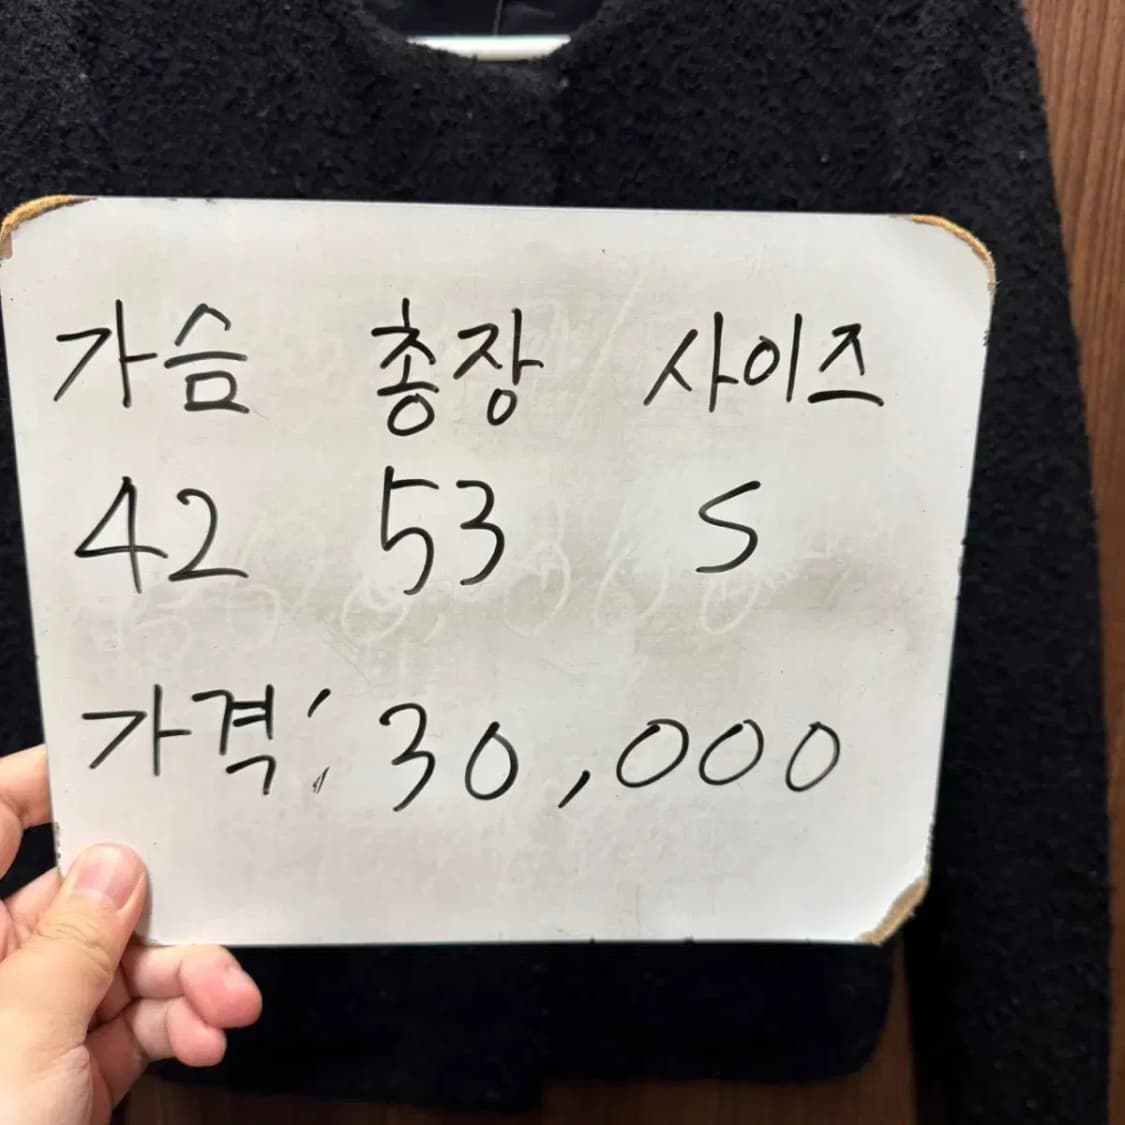 가슴 총장 사이즈
42 53 S
가격: 30,000